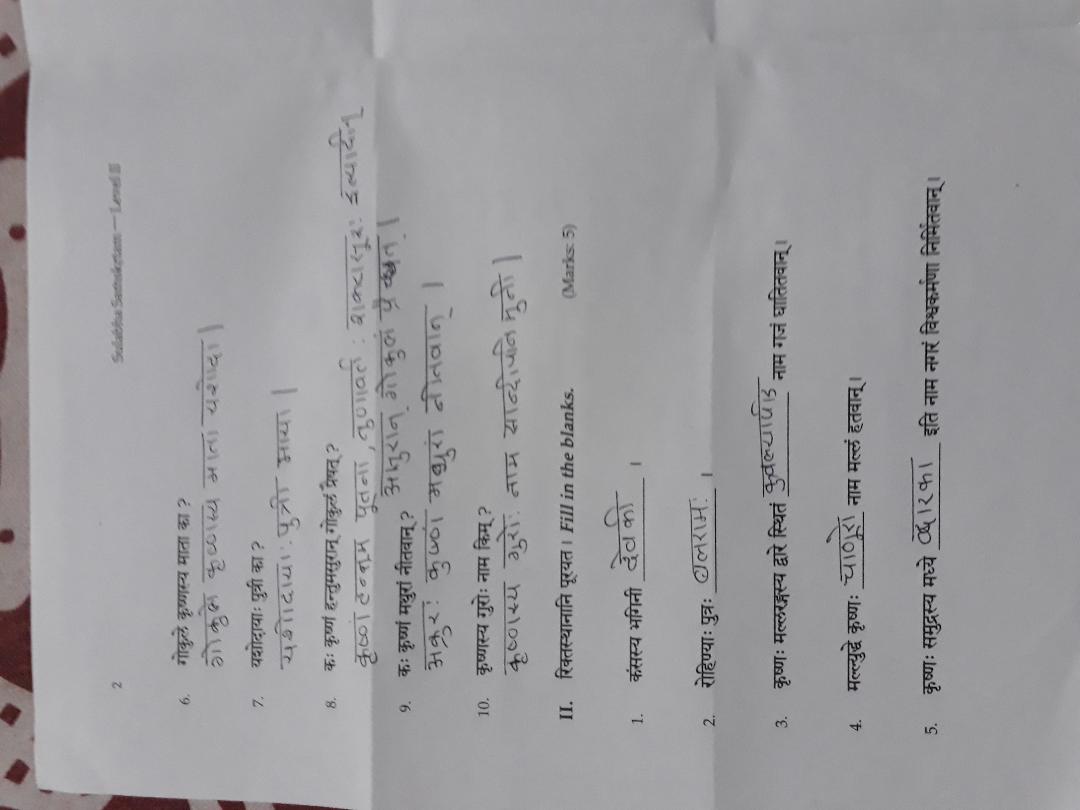 2 Sulabha Samskrtam — Level II
6. गोकुले कृष्णस्य माता का ?
गोकुले कृष्णस्य माता यशोदा |
7. यशोदायाः पुत्री का ?
यशोदायाः पुत्री माया |
8. कः कृष्णं हन्तुमसुरान् गोकुलं प्रैषत् ?
कृष्णं हन्तुम पूतना , तुणावर्तः शकटासूरः इत्यादीन्
असुरान् गोकुलं
9. कः कृष्णं मथुरां नीतवान् ?
अक्रुरः कृष्णं मथुरां नीतवान् |
10. कृष्णस्य गुरोः नाम किम् ?
कृष्णस्य गुरोः नाम सान्दीपनि मुनी |
II. रिक्तस्थानानि पूरयत । Fill in the blanks. (Marks: 5)
1. कंसस्य भगिनी देवकी ।
2. रोहिण्याः पुत्रः बलरामः ।
3. कृष्णः मल्लरङ्गस्य द्वारे स्थितं कुवल्यापीड नाम गजं घातितवान् ।
4. मल्ल्युद्धे कृष्णः चाणूरो नाम मल्लं हतवान् ।
5. कृष्णः समुद्रस्य मध्ये द्वारका इति नाम नगरं विश्वकर्मणा निर्मितवान् ।